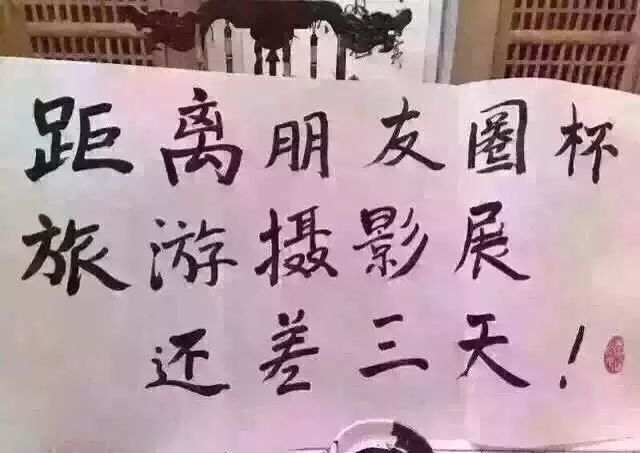 距离朋友圈杯
旅游摄影展
还差三天!